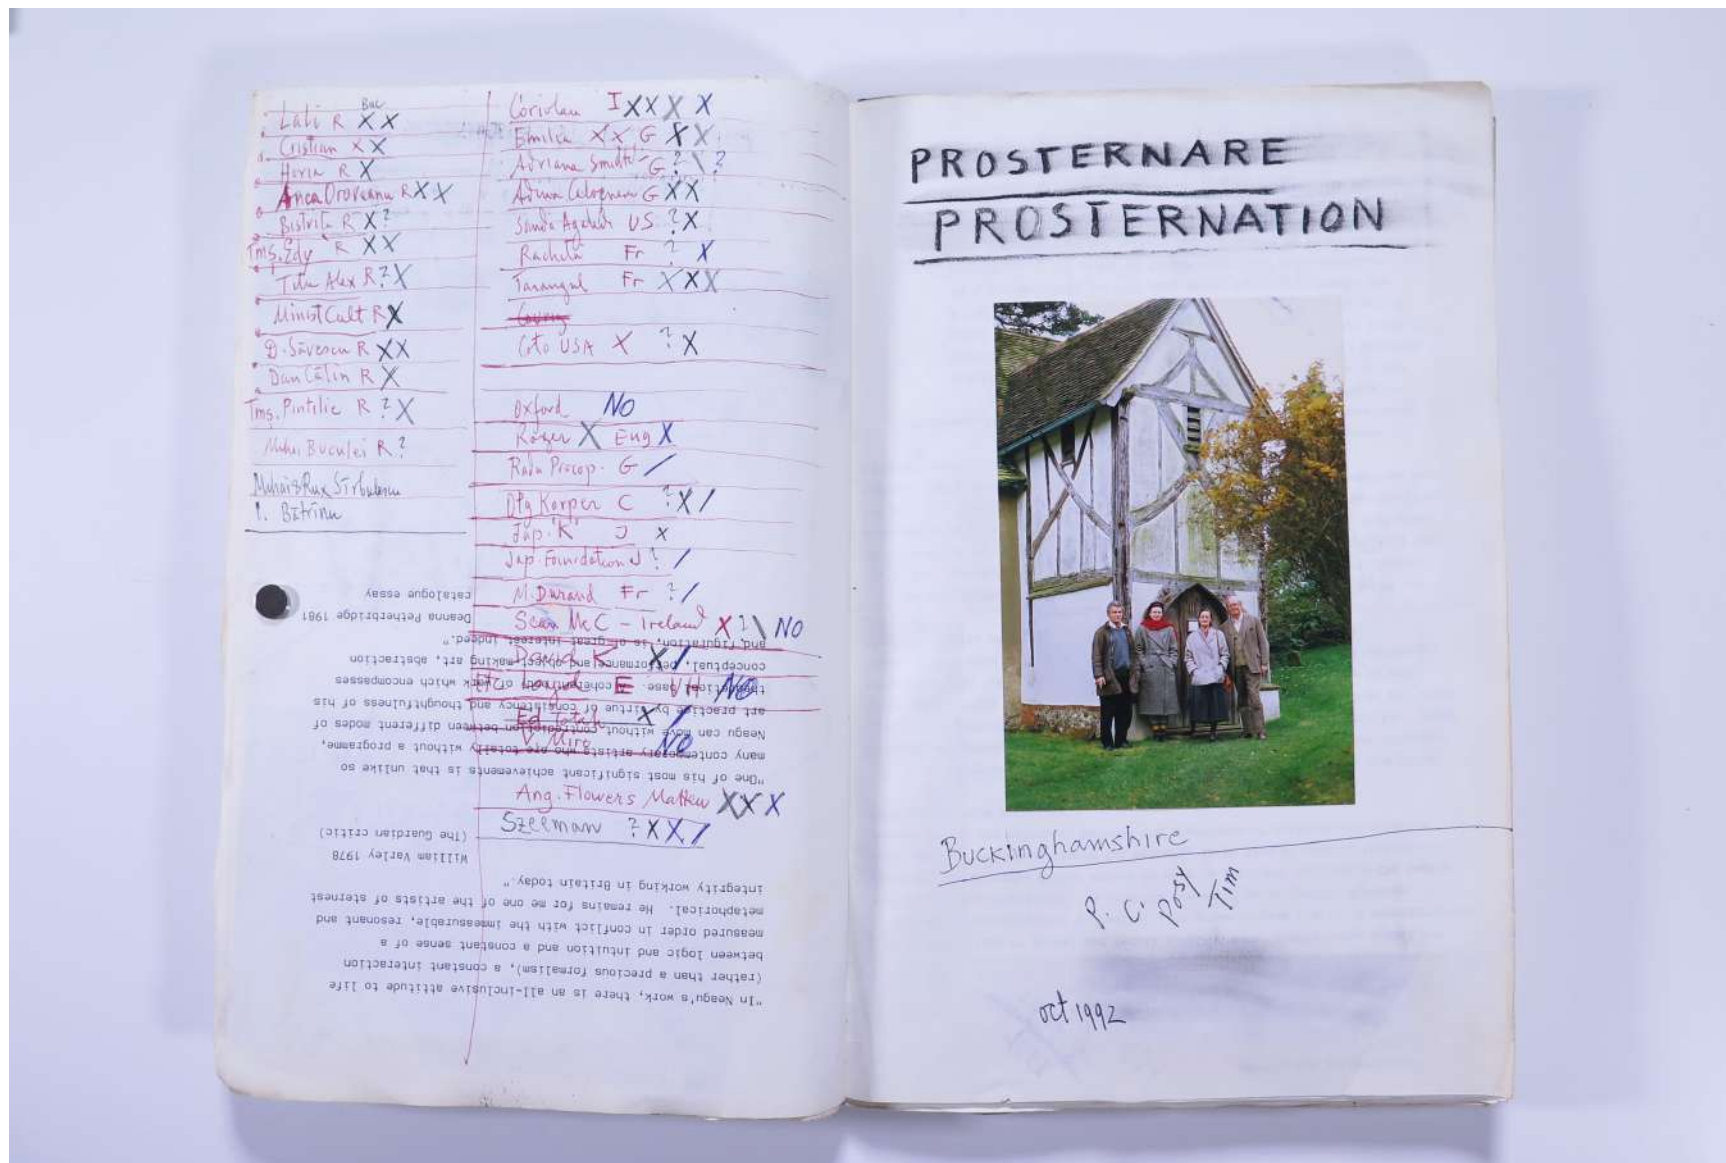 Lali R Buc X X
Cristian X X
Horia R X
Anca Oroveanu R X X
Bistrita R X ?
Tmş. Edy R X X
Titu Alex R ? X
Minist Cult R X
D. Săvescu R X X
Dan Călin R X
Tmş. Pintilie R ? X
Mihai Buculei R ?
Mihai & Rux Sîrbulescu
I. Bătrînu
Coriolan I X X X X
Emilia X X G X X
Adriana G ? \ ?
G X X
Sanda US ? X
Fr ? X
Tarangul Fr X X X
Coto USA X ? X
Oxford NO
Roger X Eng X
Radu Procop. G /
Olg Korper C ? X /
Jap. "K" J X
Jap. Foundation J ? /
M. Durand Fr ? /
Sean McC – Ireland X ? \ NO
David K X /
E VH NO
Ed X /
V. Miro NO
Ang. Flowers Matthew X X X
Szeeman ? X X /
"In Neagu's work, there is an all-inclusive attitude to life
(rather than a precious formalism), a constant interaction
between logic and intuition and a constant sense of a
measured order in conflict with the immeasurable, resonant and
metaphorical. He remains for me one of the artists of sternest
integrity working in Britain today."
William Varley 1978
(The Guardian critic)
"One of his most significant achievements is that unlike so
many contemporary artists who are totally without a programme,
Neagu can move without contradiction between different modes of
art practice by virtue of consistency and thoughtfulness of his
theoretical base - a coherent body of work which encompasses
conceptual, performance and object making art, abstraction
and figuration, is of great interest indeed."
Deanna Petherbridge 1981
catalogue essay
PROSTERNARE
PROSTERNATION
Buckinghamshire
P. C. Posy Tim
oct 1992